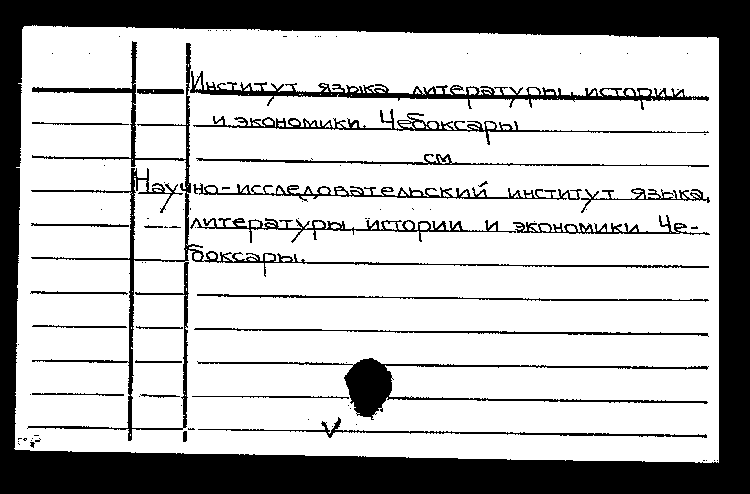 Институт языка, литературы, истории
и экономики. Чебоксары
см
Научно-исследовательский институт языка,
литературы, истории и экономики. Че-
боксары.